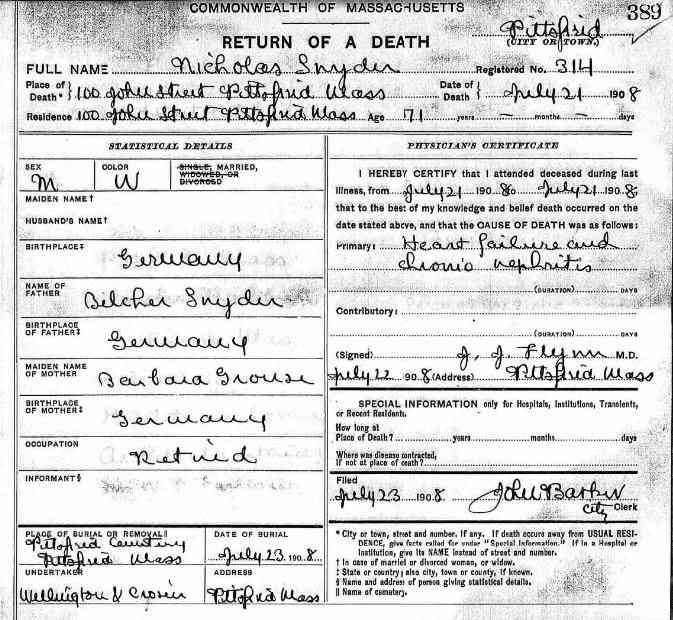 COMMONWEALTH OF MASSACHUSETTS
389
RETURN OF A DEATH
Pittsfield
(CITY OR TOWN.)
FULL NAME Nicholas Snyder Registered No. 314
Place of Death* } 100 John Street Pittsfield Mass Date of Death } July 21 1908
Residence 100 John Street Pittsfield Mass Age 71 years – months – days
STATISTICAL DETAILS
SEX
M
COLOR
W
SINGLE, MARRIED, WIDOWED, OR DIVORCED
MAIDEN NAME†
HUSBAND'S NAME†
BIRTHPLACE‡
Germany
NAME OF FATHER
Bilcher Snyder
BIRTHPLACE OF FATHER‡
Germany
MAIDEN NAME OF MOTHER
Barbara Grouse
BIRTHPLACE OF MOTHER‡
Germany
OCCUPATION
Retired
INFORMANT§
PLACE OF BURIAL OR REMOVAL‖
Pittsfield Cemetery
Pittsfield Mass
DATE OF BURIAL
July 23 1908.
UNDERTAKER
Wellington & Cronin
ADDRESS
Pittsfield Mass
PHYSICIAN'S CERTIFICATE
I HEREBY CERTIFY that I attended deceased during last
illness, from July 21 1908 to July 21 1908,
that to the best of my knowledge and belief death occurred on the
date stated above, and that the CAUSE OF DEATH was as follows:
Primary: Heart failure and
chronic nephritis
(DURATION) DAYS
Contributory:
(DURATION) DAYS
(Signed) J. J. Flynn M.D.
July 22 1908 (Address) Pittsfield Mass
SPECIAL INFORMATION only for Hospitals, Institutions, Transients,
or Recent Residents.
How long at
Place of Death? years months days
Where was disease contracted,
if not at place of death?
Filed
July 23 1908 John Barker
City Clerk
* City or town, street and number. If any. If death occurs away from USUAL RESI-
DENCE, give facts called for under "Special Information." If in a Hospital or
Institution, give its NAME instead of street and number.
† In case of married or divorced woman, or widow.
‡ State or country; also city, town or county, if known.
§ Name and address of person giving statistical details.
‖ Name of cemetery.